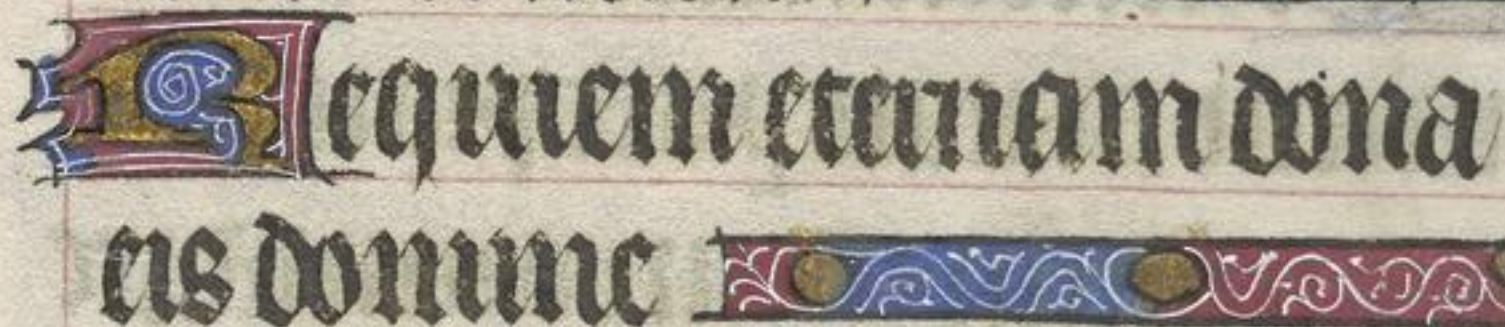 Requiem eternam dona
eis domine